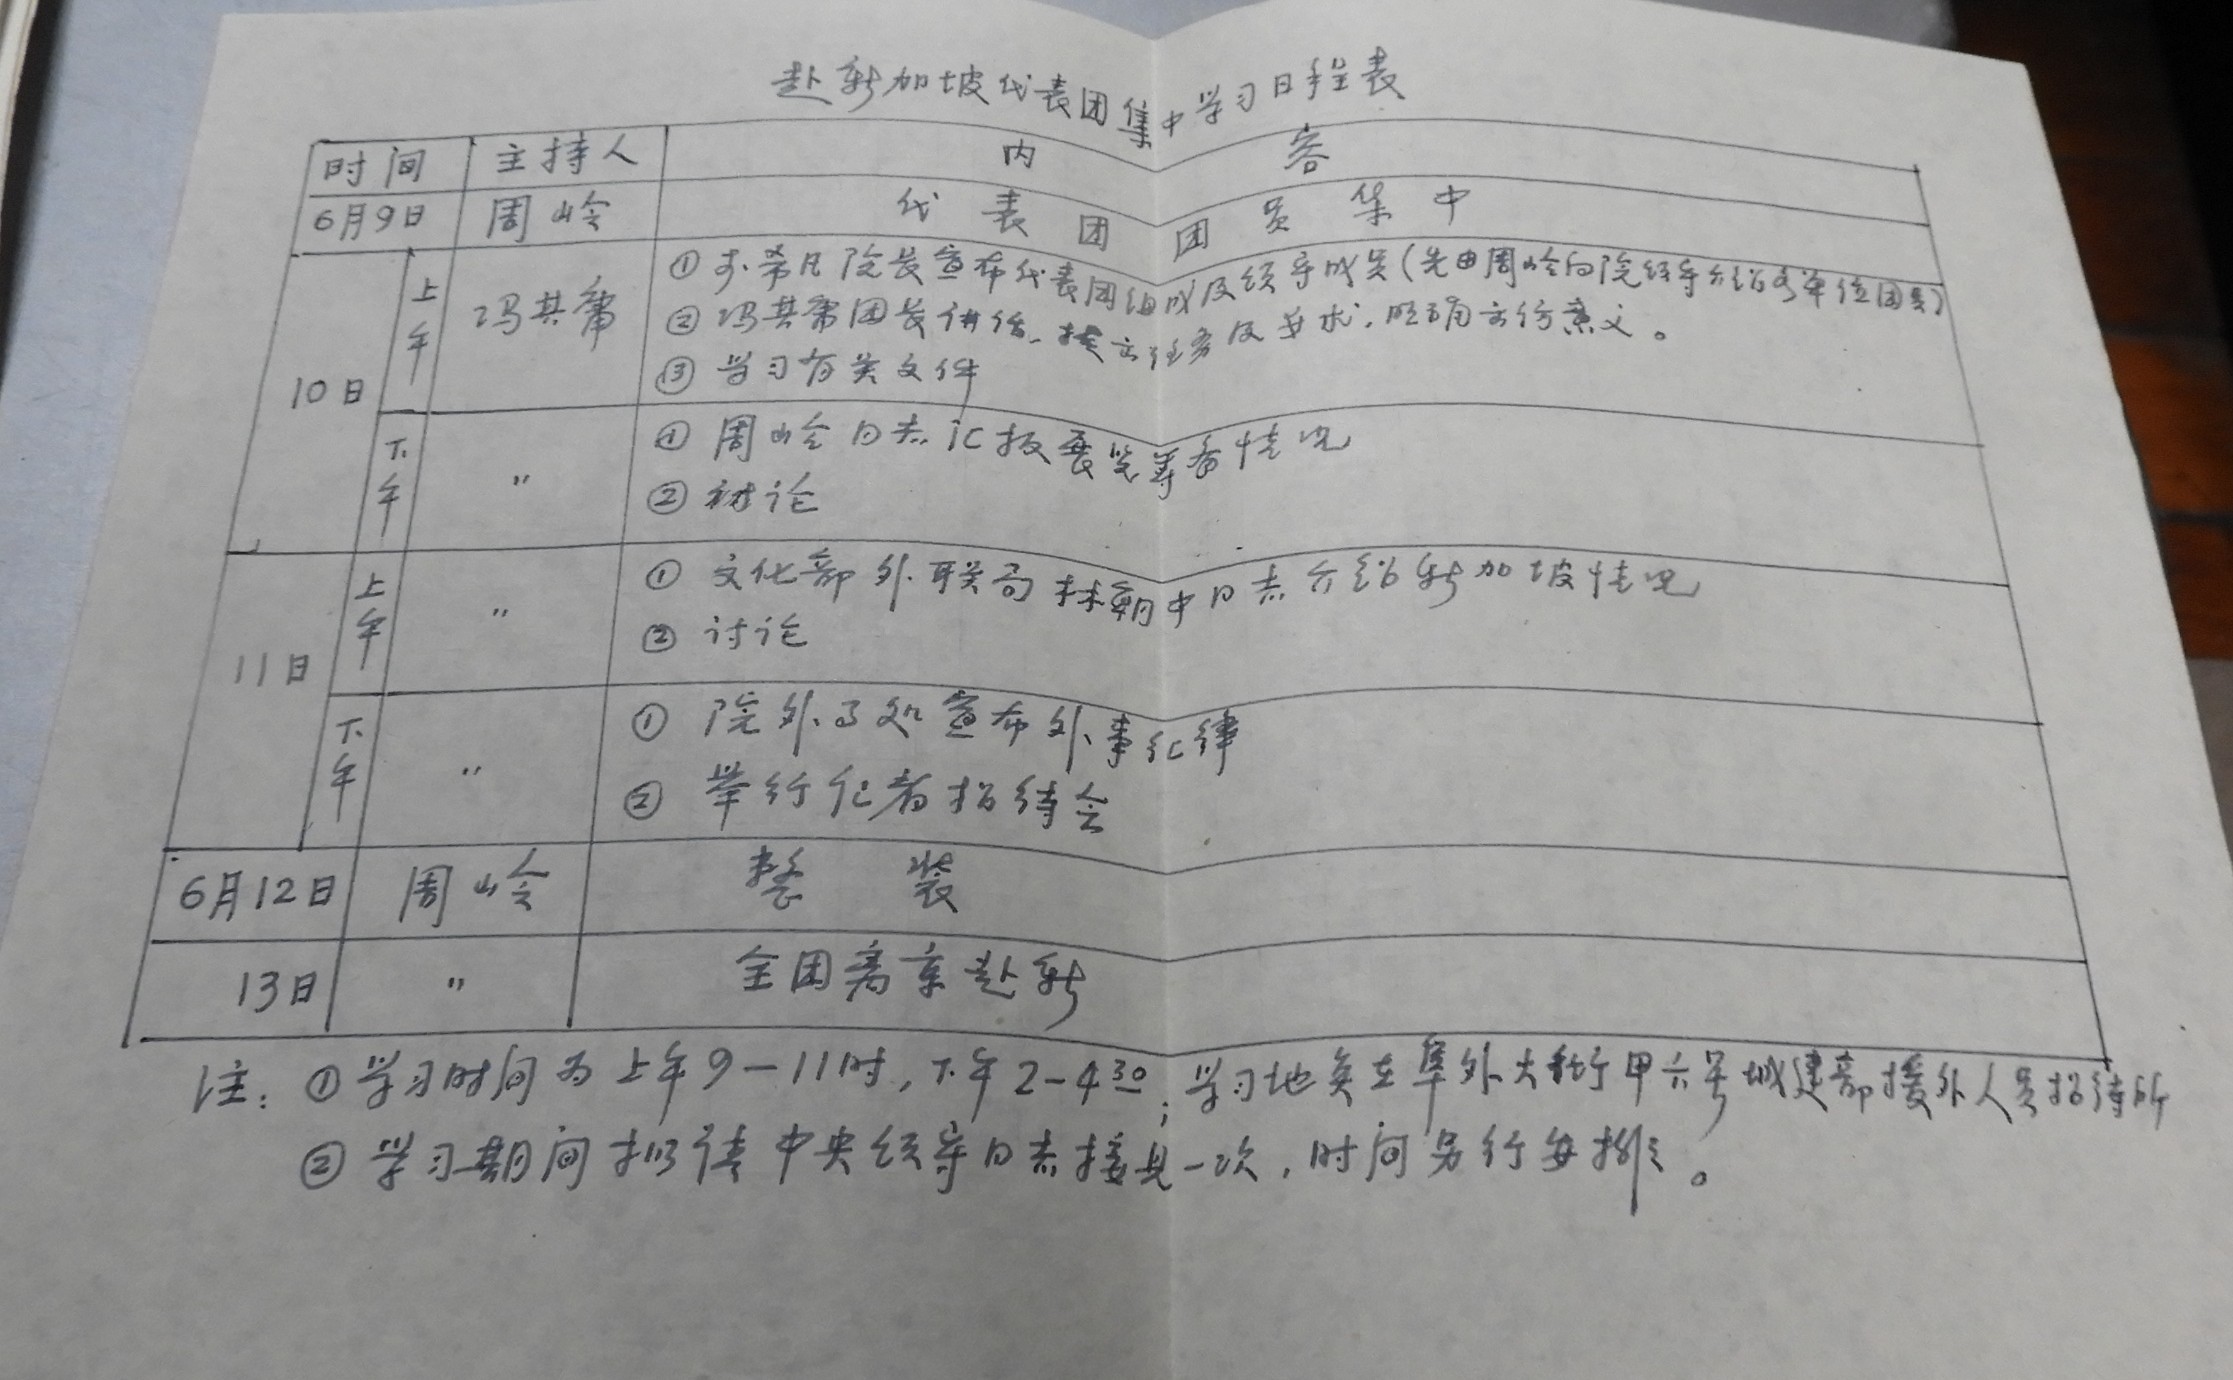 赴新加坡代表团集中学习日程表
时间 主持人 内容
6月9日 周岭 代表团团员集中
10日 上午 冯其庸 ① 李希凡院长宣布代表团组成及领导成员(先由周岭向院领导介绍各单位团员)
② 冯其庸团长讲话,提出任务及要求,明确此行意义。
③ 学习有关文件
下午 〃 ① 周岭同志汇报展览筹备情况
② 讨论
11日 上午 〃 ① 文化部外联局林朝中同志介绍新加坡情况
② 讨论
下午 〃 ① 院外事处宣布外事纪律
② 举行记者招待会
6月12日 周岭 整装
13日 〃 全团离京赴新
注:①学习时间为上午9—11时,下午2—4³⁰;学习地点在阜外大街甲六号城建部援外人员招待所
②学习期间拟请中央领导同志接见一次,时间另行安排。